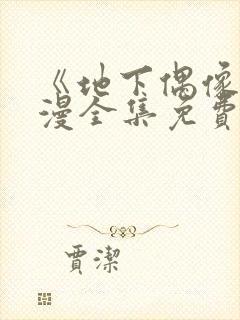 《地下偶像
漫全集免費
賈潔